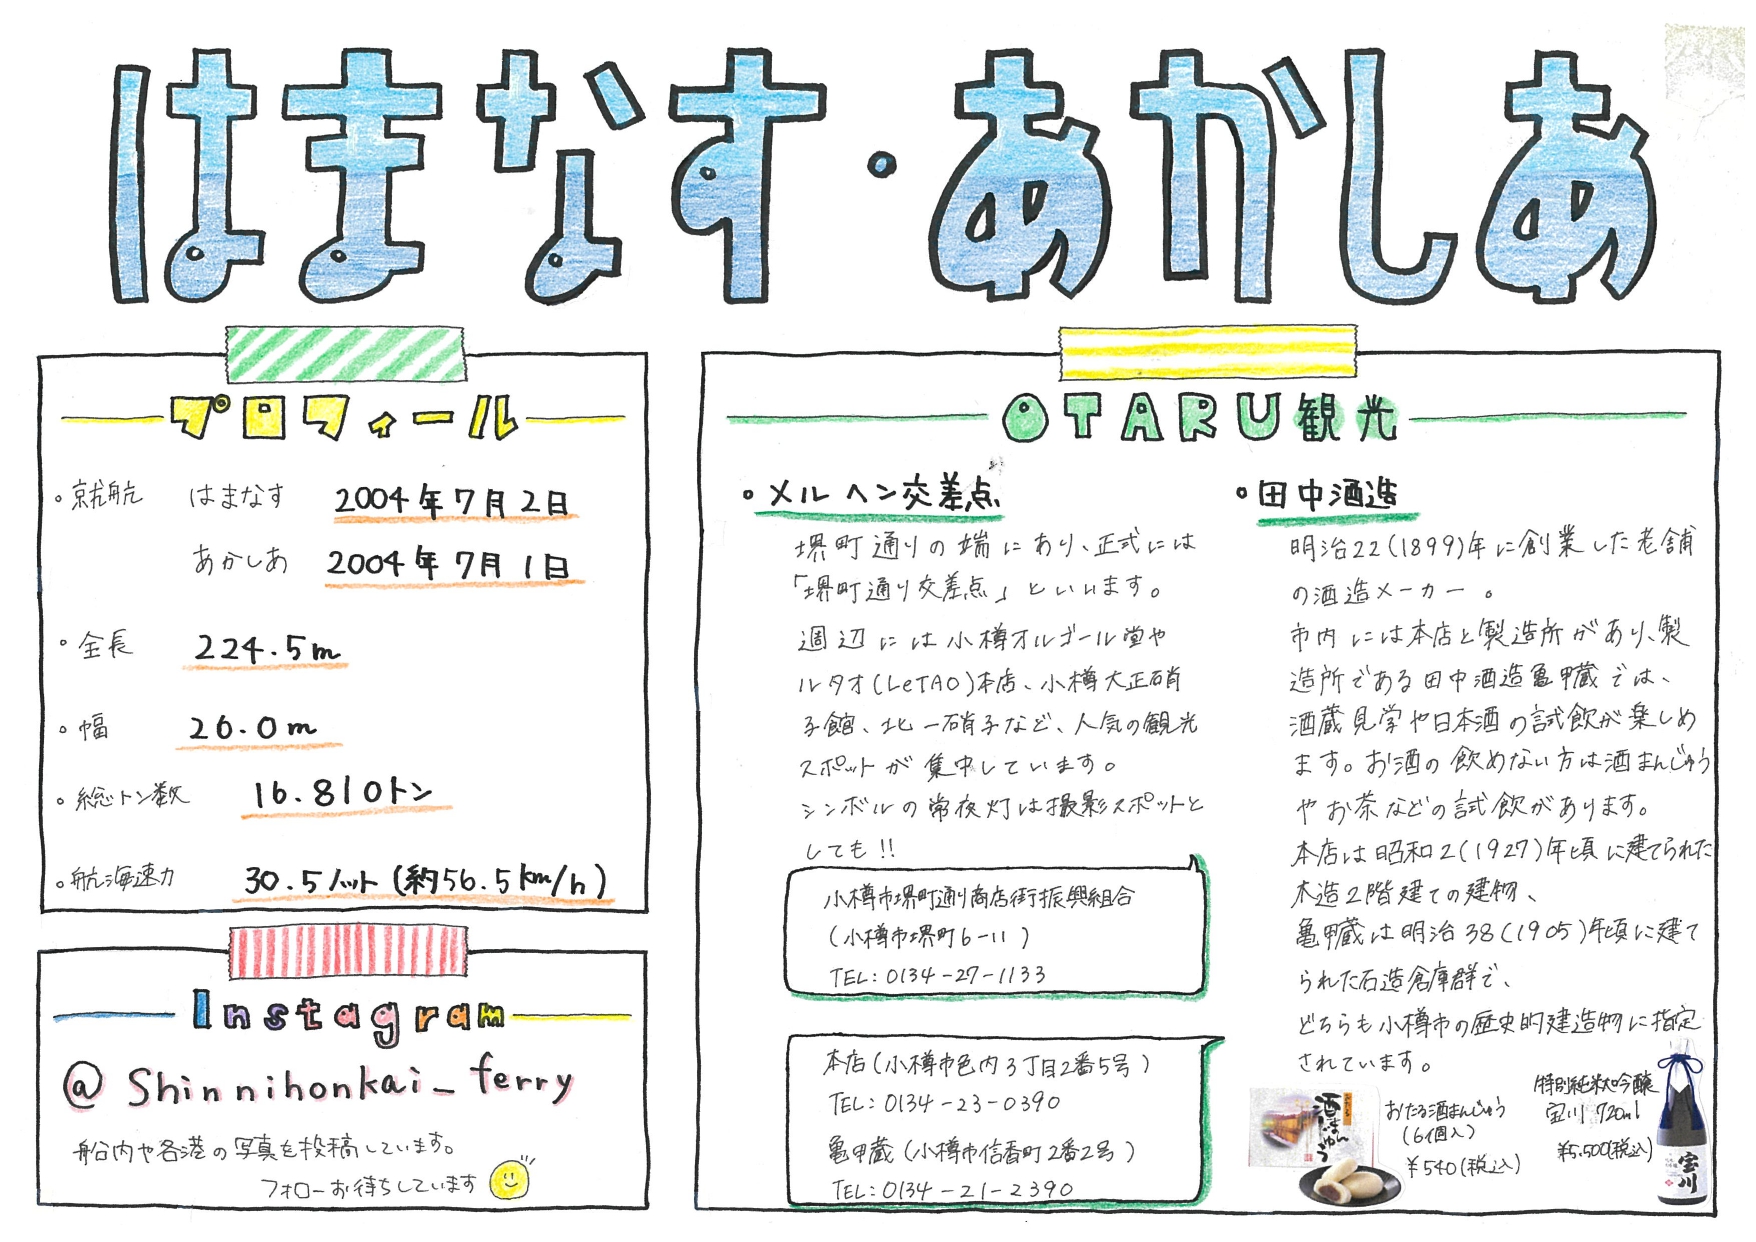 はまなす・あかしあ
プロフィール
・就航 はまなす 2004年7月2日
あかしあ 2004年7月1日
・全長 224.5m
・幅 26.0m
・総トン数 16.810トン
・航海速力 30.5ノット (約56.5km/h)
Instagram
@ Shinnihonkai_ferry
船内や各港の写真を投稿しています。
フォローお待ちしています
OTARU観光
・メルヘン交差点
堺町通りの端にあり、正式には
「堺町通り交差点」といいます。
週辺には小樽オルゴール堂や
ルタオ(LeTAO)本店、小樽大正硝
子館、北一硝子など、人気の観光
スポットが集中しています。
シンボルの常夜灯は撮影スポットと
しても!!
小樽市堺町通り商店街振興組合
(小樽市堺町6-11)
TEL:0134-27-1133
本店(小樽市色内3丁目2番5号)
TEL:0134-23-0390
亀甲蔵(小樽市信香町2番2号)
TEL:0134-21-2390
・田中酒造
明治22(1899)年に創業した老舗
の酒造メーカー。
市内には本店と製造所があり、製
造所である田中酒造亀甲蔵では、
酒蔵見学や日本酒の試飲が楽しめ
ます。お酒の飲めない方は酒まんじゅう
やお茶などの試飲があります。
本店は昭和2(1927)年頃に建てられた
木造2階建ての建物、
亀甲蔵は明治38(1905)年頃に建て
られた石造倉庫群で、
どちらも小樽市の歴史的建造物に指定
されています。
おたる
酒まんじゅう
おたる酒まんじゅう
(6個入)
¥540(税込)
特別純米大吟醸
宝川 720ml
¥5.500(税込)
宝川